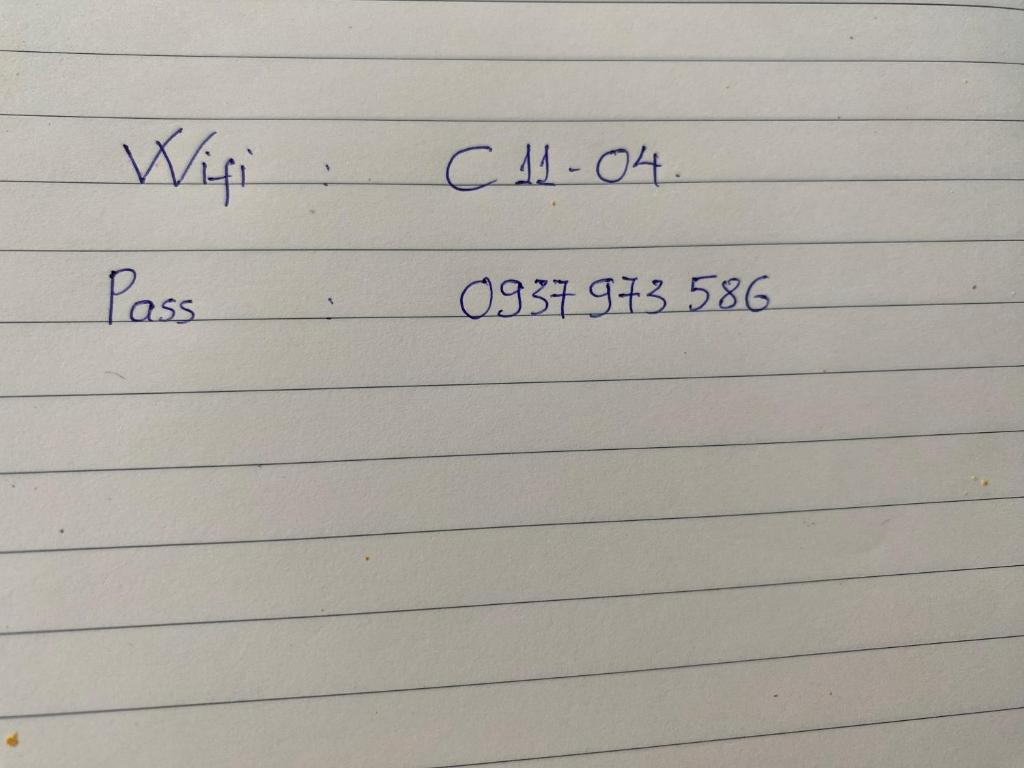 Wifi : C 11-04.
Pass : 0937 973 586